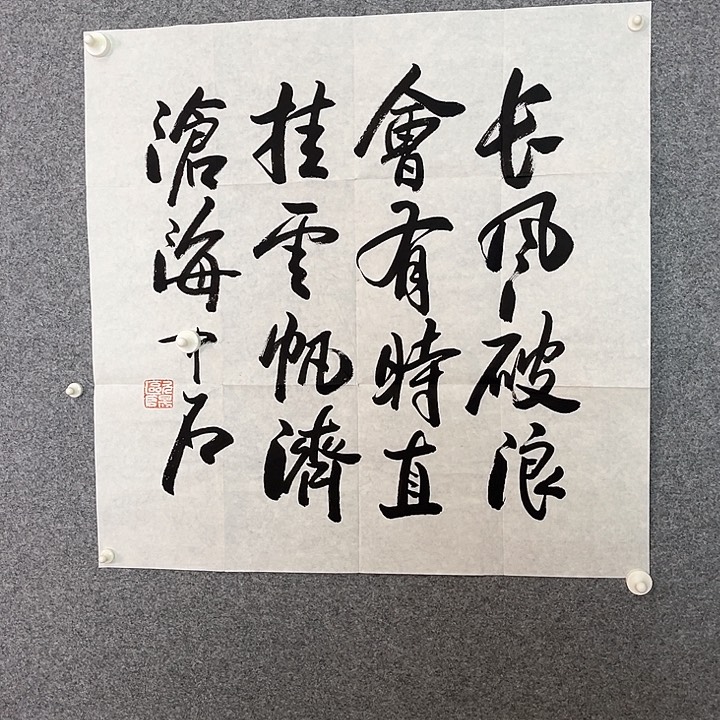 长风破浪
會有時直
挂雲帆濟
滄海
中石